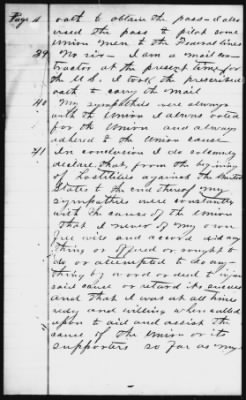 Page 4
oath to obtain the pass - I also
used the pass to pilot some
Union men to the Federal lines
39 No sir - I am a mail con-
tractor at the present time for
the U.S. I took the prescribed
oath to carry the mail
40 My sympathies were always
with the Union I always voted
for the Union and always
adhered to the Union cause
41 In conclusion I do solemnly
declare that, from the begining
of hostilities against the United
States to the end thereof my
sympathies were constantly
with the cause of the Union
That I never of my own
free will and accord did any
thing or offered or sought to
do or attempted to do any-
thing by word or deed to injure
said cause or retard its success
and that I was at all times
redy and willing when called
upon to aid and assist the
cause of the Union or its
supporters so far as my